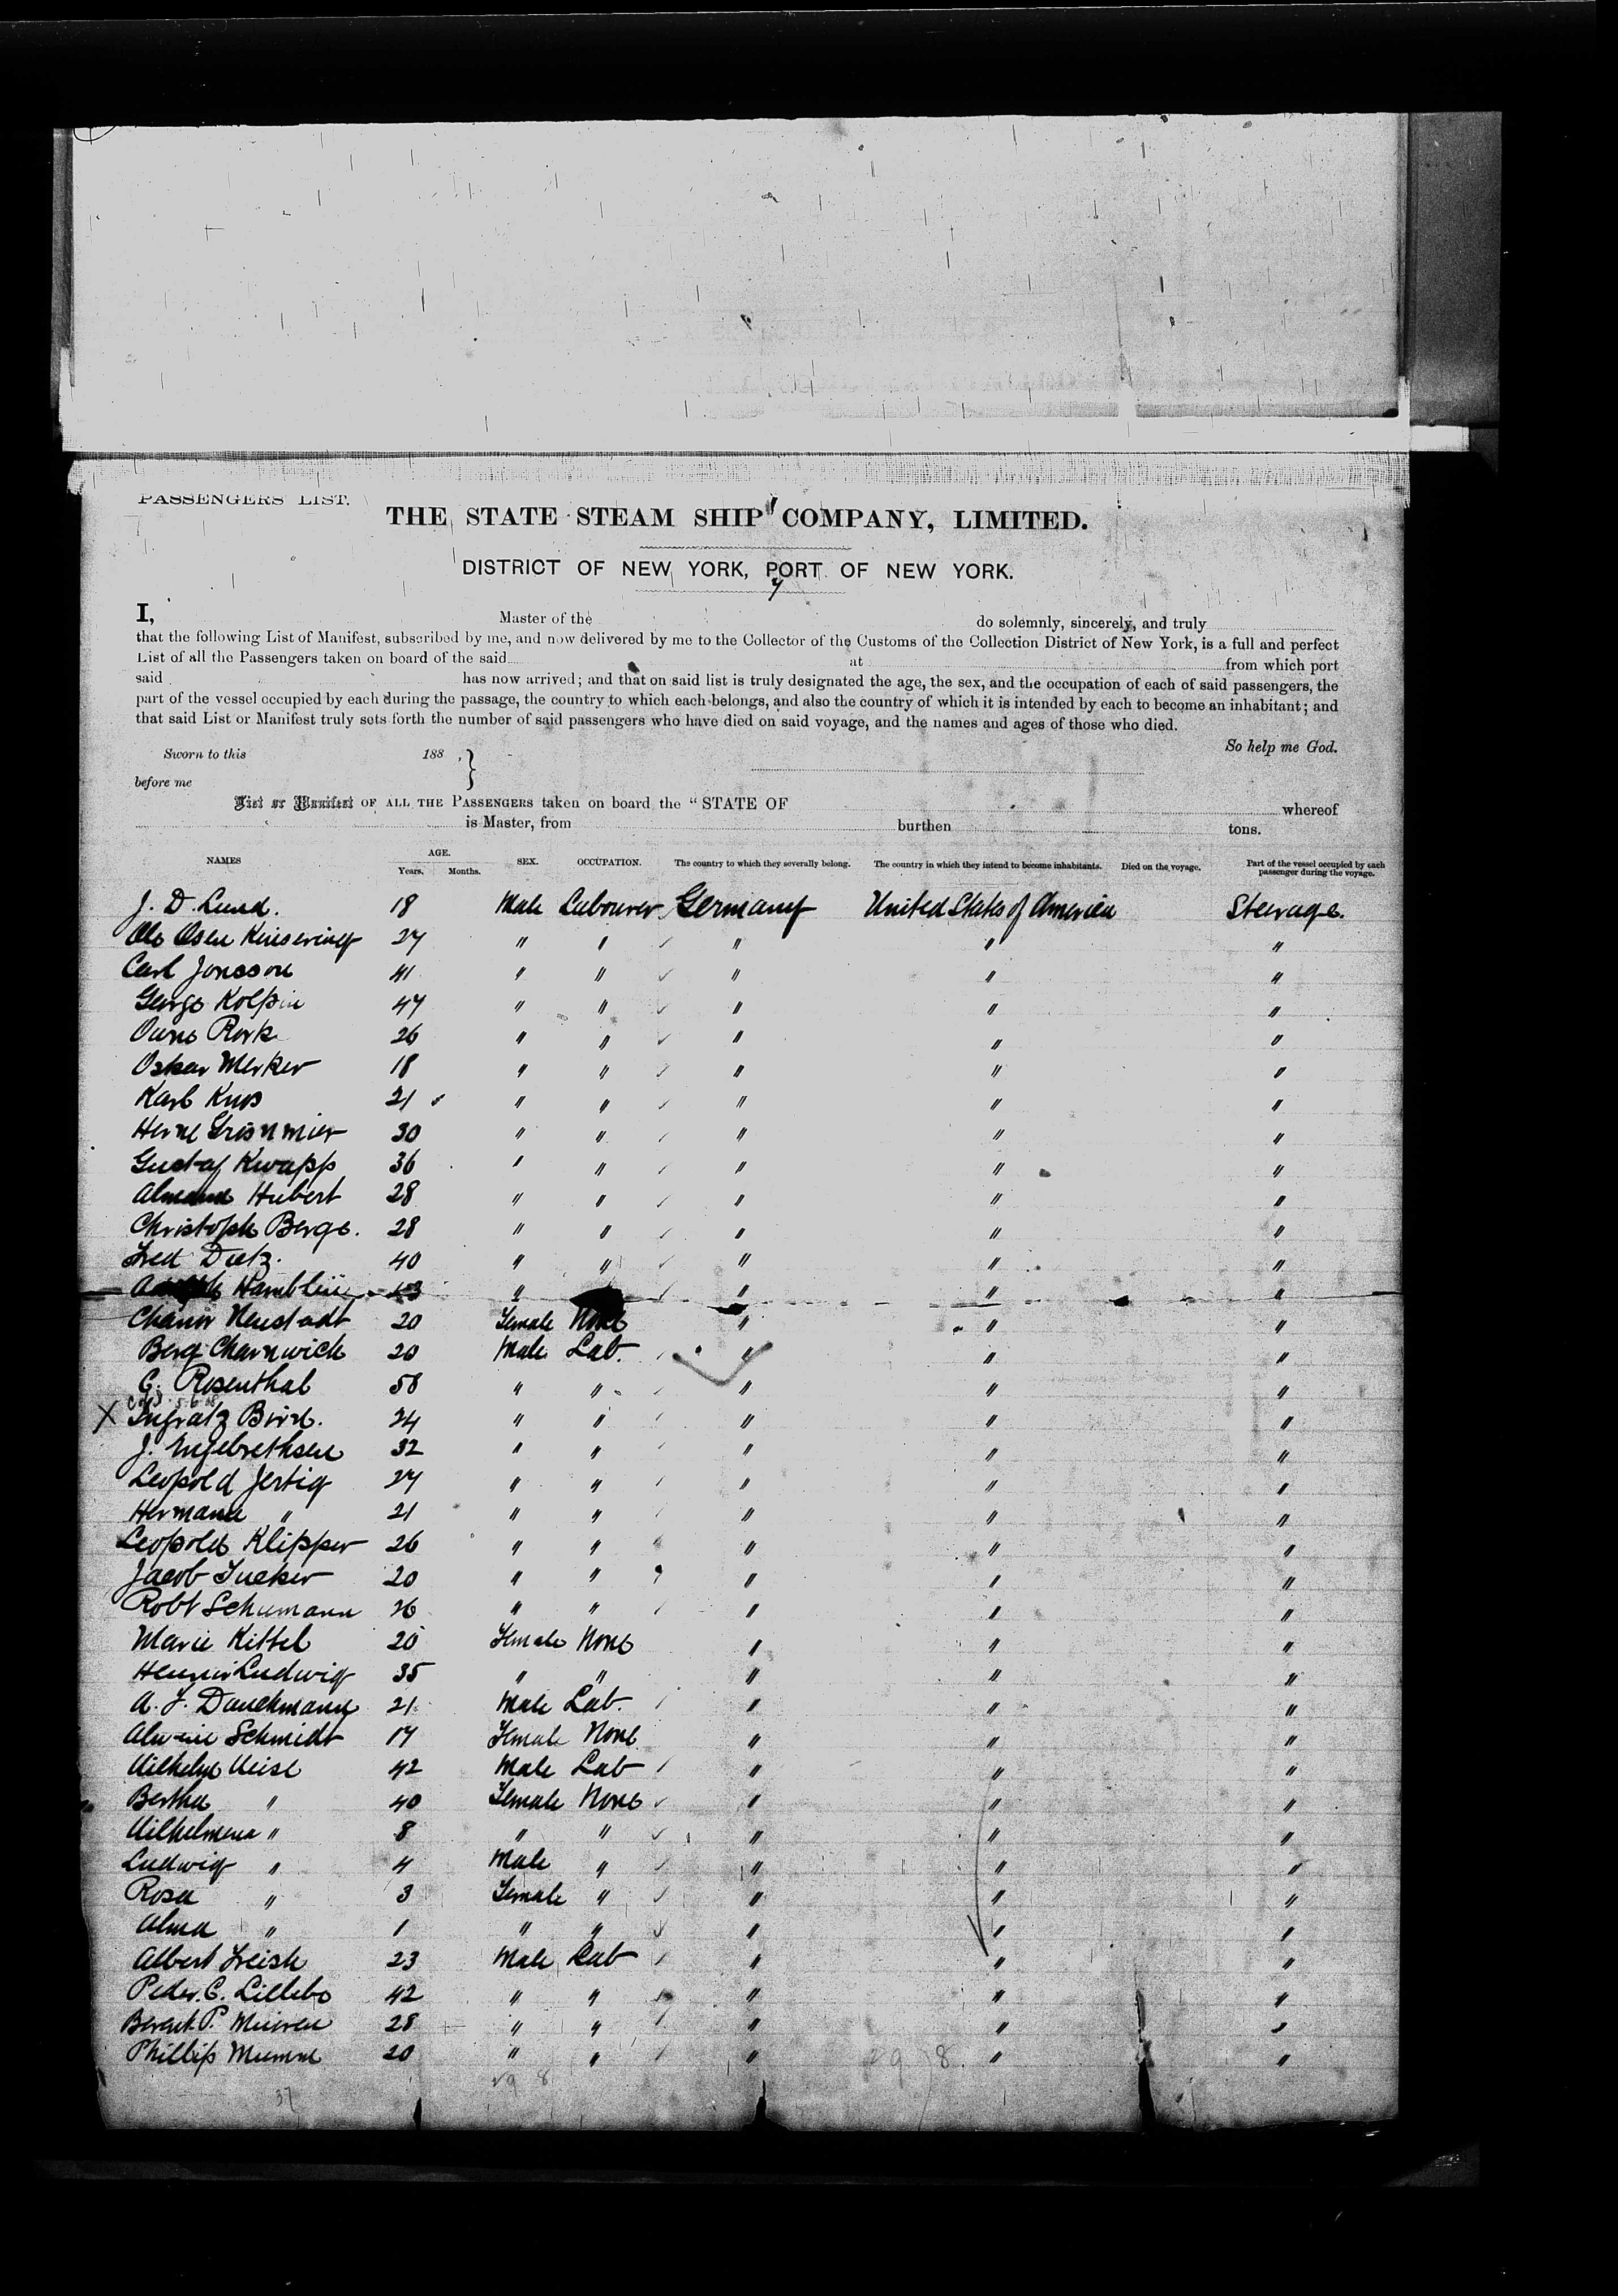 PASSENGERS LIST.
THE STATE STEAM SHIP COMPANY, LIMITED.
DISTRICT OF NEW YORK, PORT OF NEW YORK.
I, Master of the do solemnly, sincerely, and truly
that the following List of Manifest, subscribed by me, and now delivered by me to the Collector of the Customs of the Collection District of New York, is a full and perfect
List of all the Passengers taken on board of the said at from which port
said has now arrived; and that on said list is truly designated the age, the sex, and the occupation of each of said passengers, the
part of the vessel occupied by each during the passage, the country to which each belongs, and also the country of which it is intended by each to become an inhabitant; and
that said List or Manifest truly sets forth the number of said passengers who have died on said voyage, and the names and ages of those who died.
So help me God.
Sworn to this 188 , }
before me
List or Manifest OF ALL THE PASSENGERS taken on board the "STATE OF whereof
is Master, from burthen tons.
NAMES AGE. Years. Months. SEX. OCCUPATION. The country to which they severally belong. The country in which they intend to become inhabitants. Died on the voyage. Part of the vessel occupied by each passenger during the voyage.
J. D. Lund. 18 Male Labourer Germany United States of America Steerage.
Ole Olsen 27 " " " " "
Carl Jonsson 41 " " " " "
George Kolpin 47 " " " " "
Rork 26 " " " " "
Oskar Merker 18 " " " " "
Karl 21 " " " " "
30 " " " " "
Gustaf Knapp 36 " " " " "
Hubert 28 " " " " "
Christoph Berge. 28 " " " " "
Fred Dietz. 40 " " " " "
" " " "
Neustadt 20 Female None " " "
Berg Charnwick 20 Male Lab. " " "
C. Rosenthal 58 " " " " "
X 24 " " " " "
J. Engebrethsen 32 " " " " "
Leopold Jertig 27 " " " " "
Hermann " 21 " " " " "
Leopold Klipper 26 " " " " "
Jacob 20 " " " " "
Robt Schumann 26 " " " " "
Marie Kittel 20 Female None " " "
Ludwig 35 " " " " "
A. F. Dauchmann 21 Male Lab. " " "
Schmidt 17 Female None " " "
Wilhelm 42 Male Lab " " "
Bertha " 40 Female None " " "
Wilhelmena " 8 " " " " "
Ludwig " 4 Male " " " "
Rosa " 3 Female " " " "
Alma " 1 " " " " "
Albert 23 Male Lab " " "
Peder. C. Lillebo 42 " " " " "
Berent. P. 28 " " " " "
Phillip 20 " " " " "
29 8
29 8
37